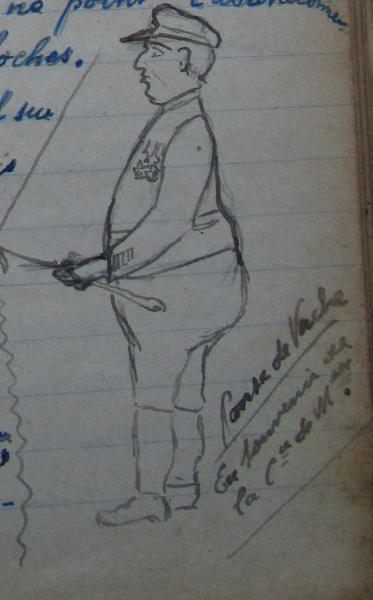 ne point
oches.
l su
is
Panse de Vache
En souvenir de
la Cie de Mses.